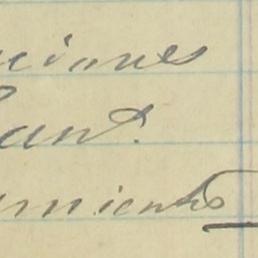 ciones
ant.
miento